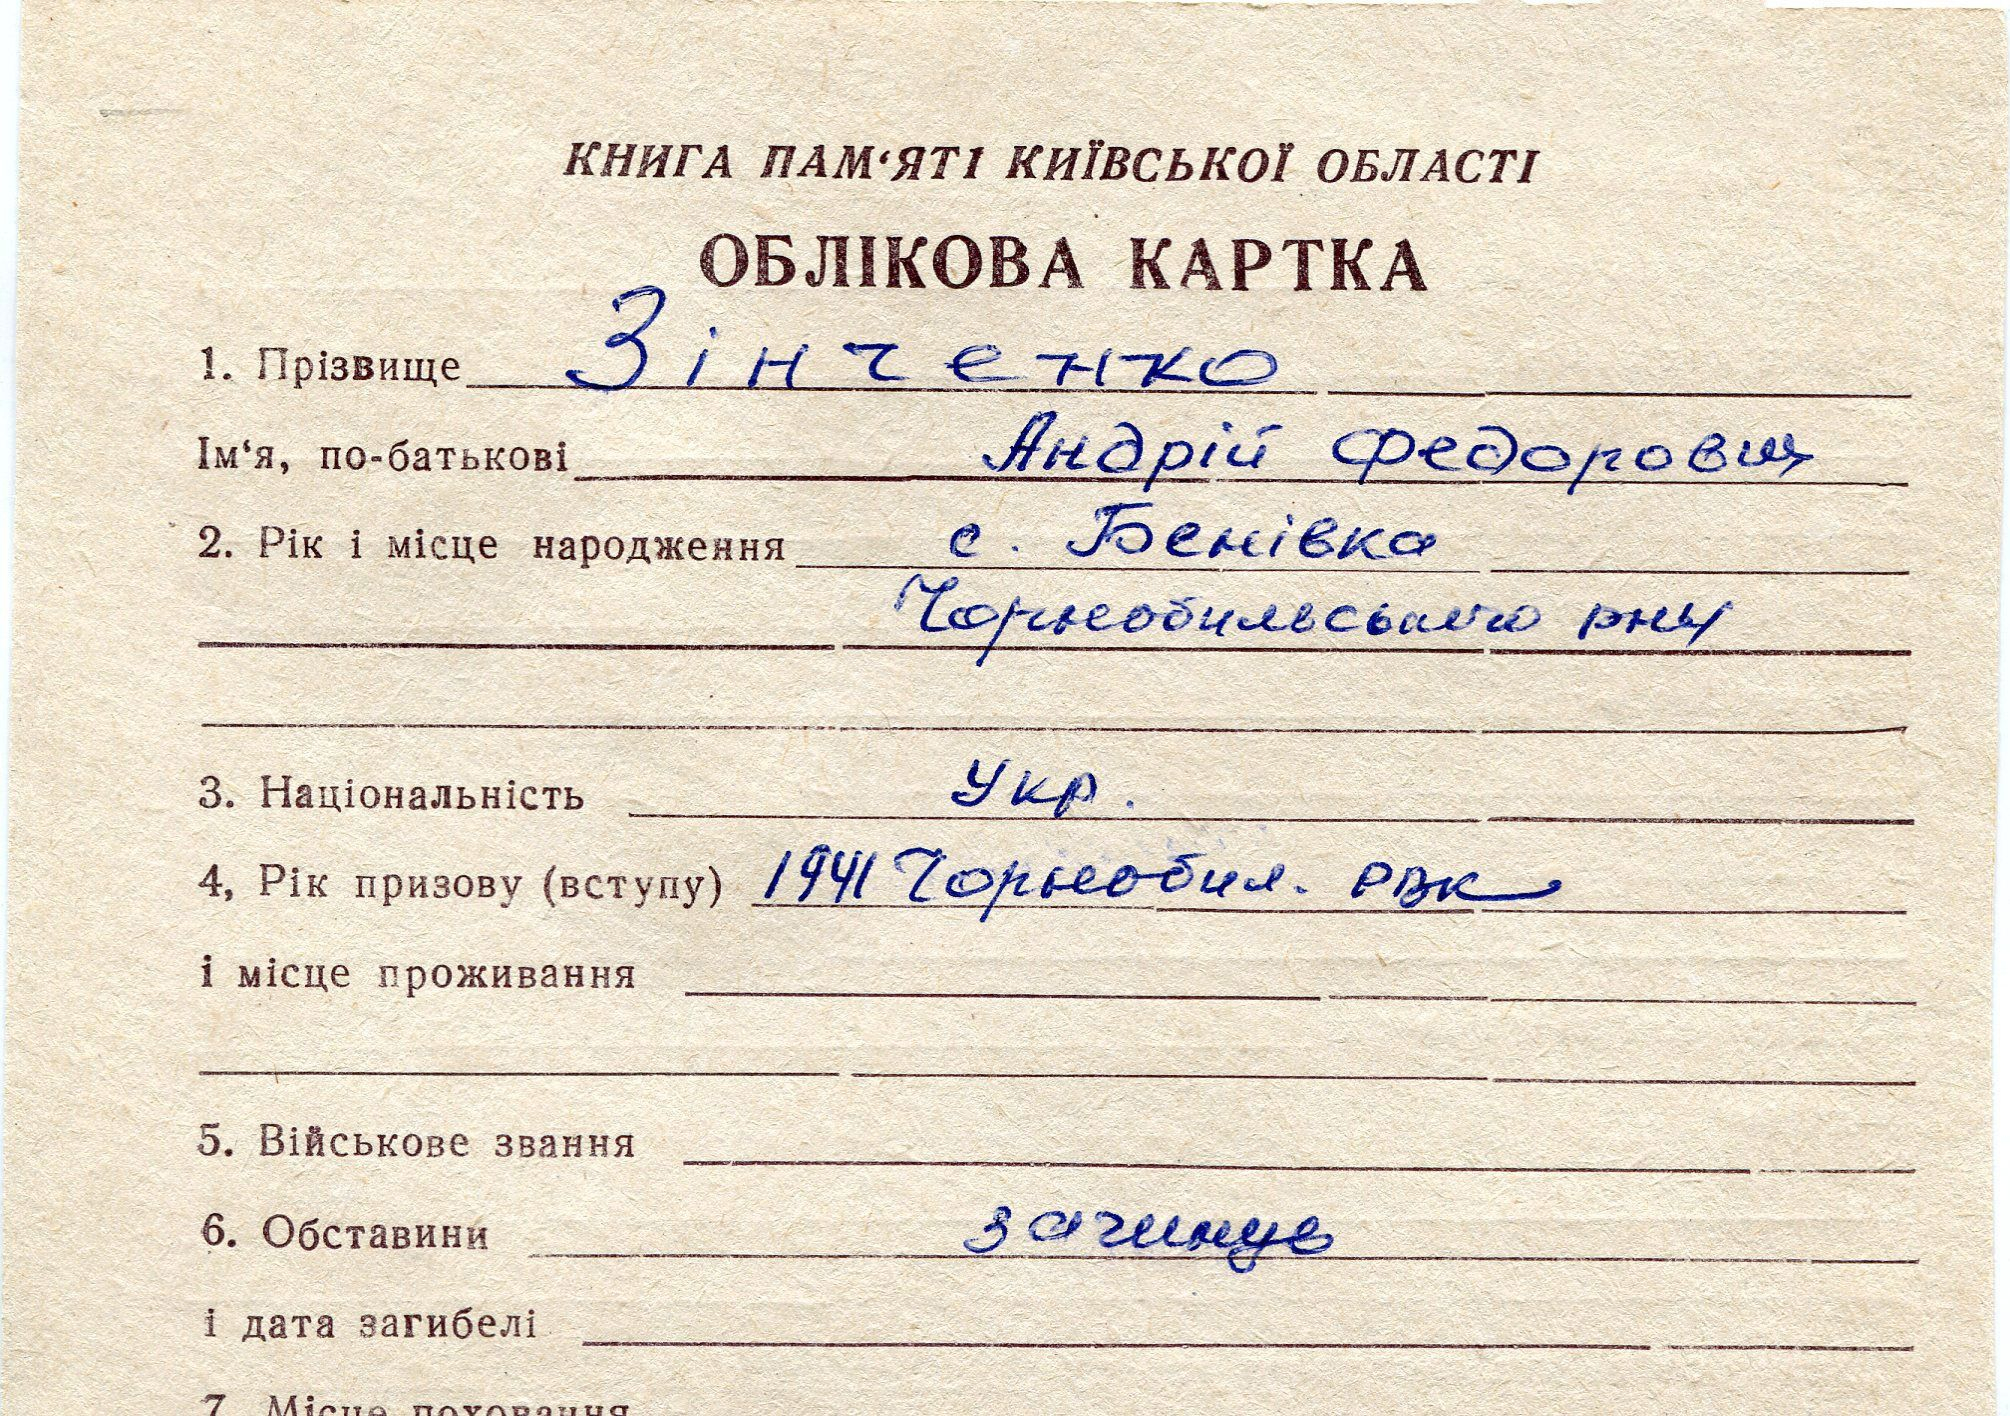 КНИГА ПАМ‘ЯТІ КИЇВСЬКОЇ ОБЛАСТІ
ОБЛІКОВА КАРТКА
1. Прізвище Зінченко
Ім‘я, по-батькові Андрій Федорович
2. Рік і місце народження с. Бенівка
Чорнобильського р-ну
3. Національність Укр.
4, Рік призову (вступу) 1941 Чорнобил. РВК
і місце проживання
5. Військове звання
6. Обставини загинув
і дата загибелі
7. Місце поховання